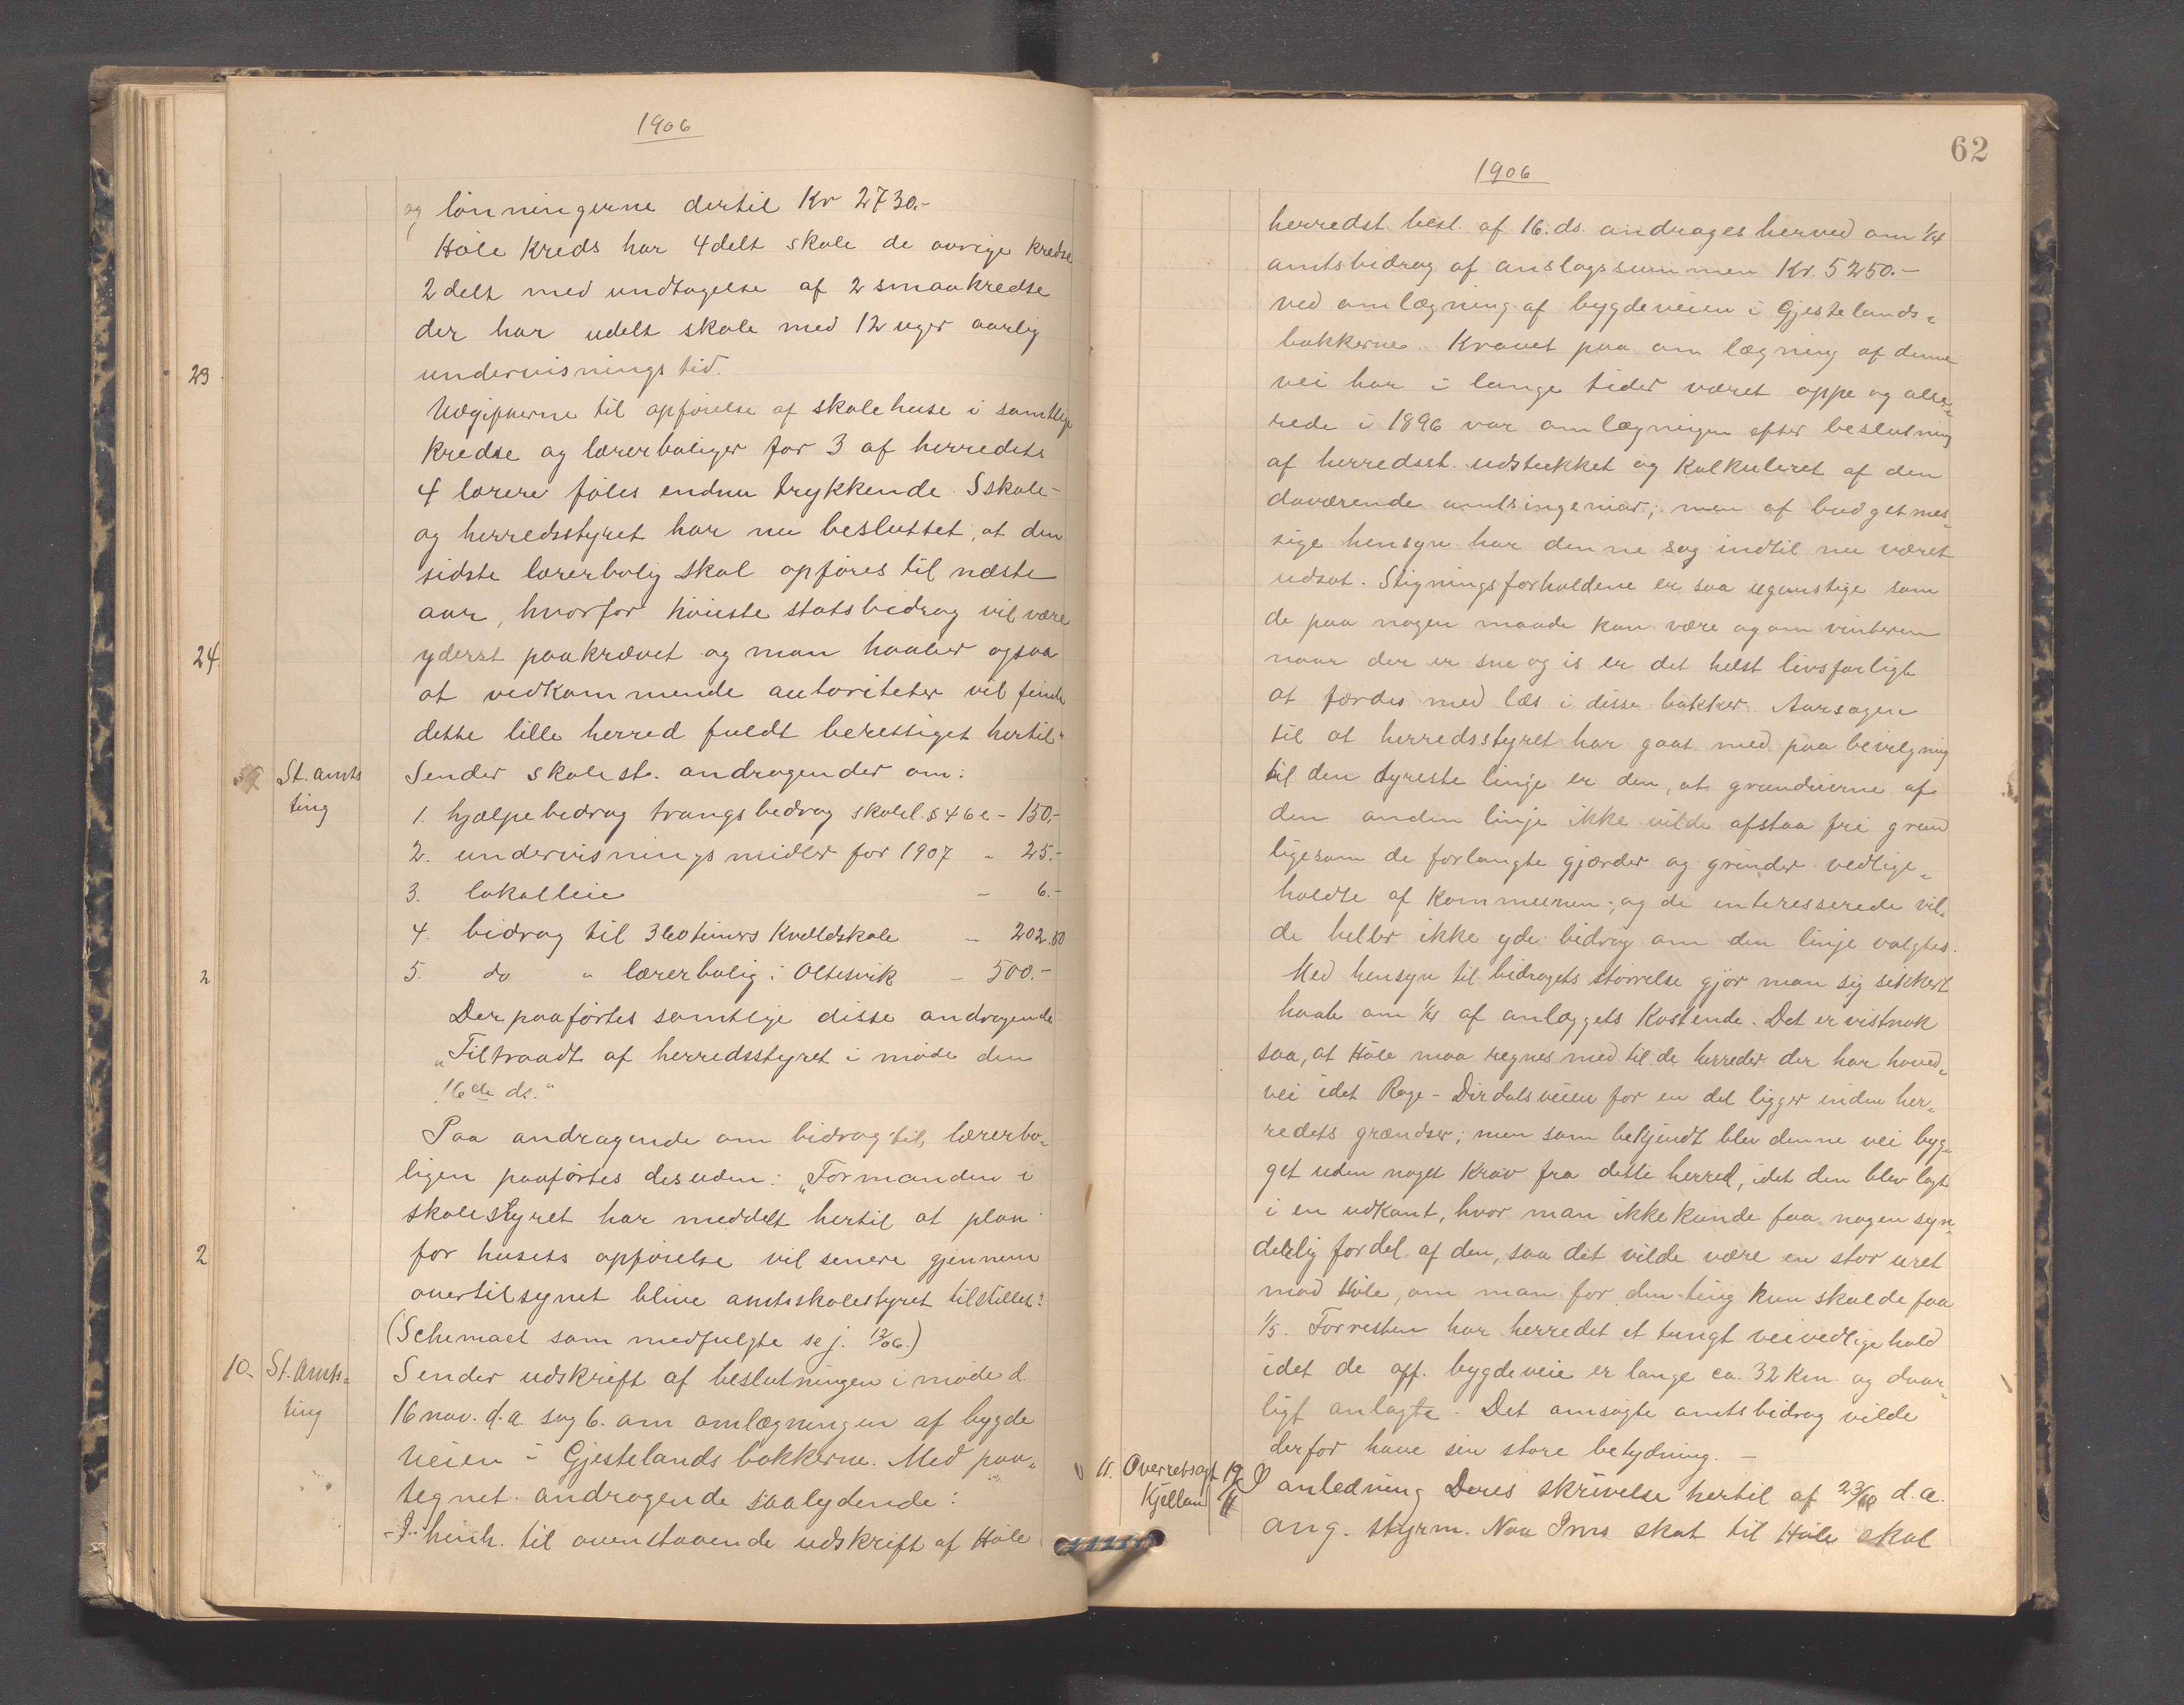 1906
og lønningerne dertil Kr 2730.-
Høle Kreds har 4delt skole de øvrige kredse
2delt med undtagelse af 2 smaakredse
der har udelt skole med 12 uger aarlig
undervisningstid.
Udgifterne til opførelse af skolehuse i samtlige
Kredse og lærerboliger for 3 af herredets
4 lærere føles endnu trykkende. Sskole-
og herredsstyret har nu besluttet, at den
sidste lærerbolig skal opføres til næste
aar, hvorfor høieste statsbidrag vil være
yderst paakrævet og man haaber ogsaa
at vedkommende autoriteter vil finde
dette lille herred fuldt berettiget hertil"
St. amts Sender skolest. andragender om:
ting
1. hjælpebedrag trangsbedrag skolel. § 46 e - 150,-
2. undervisningsmidler for 1907 " 25.-
3. lokalleie - 6.-
4. bidrag til 360 timers Kveldskole - 202.80
5. do " lærerbolig i Oltesvik - 500.-
Der paaførtes samtlige disse andragende
"Tiltraadt af herredsstyret i møde den
16de ds."
Paa andragende om bidrag til lærerbo-
ligen paaførtes desuden: "Formanden i
skolestyret har meddelt hertil at plan
for husets opførelse vil senere gjennem
overtilsynet blive amtsskolestyret tilstillet"
(Schemaet som medfulgte se j. 12/06.)
10. St. Amts- Sender udskrift af beslutningen i møde d.
ting 16 nov. d.a. sag 6. om omlægningen af bygde
veien i Gjestelands bakkerne. Med paa-
tegnet andragende saalydende:
- I henh. til ovenstaaende udskrift af Høle
23
24
2
2
62
1906
herredst. besl. af 16. ds. andrages herved om 1/4
amtsbidrag af anslagssummen Kr. 5250.-
ved omlægning af bygdeveien i Gjestelands-
bakkerne. Kravet paa omlægning af denne
vei har i lange tider været oppe og alle-
rede i 1896 var omlægningen efter beslutning
af herredsst. udstukket og Kalkuleret af den
daværende amtsingeniør; men af budgetmes-
sige hensyn har denne sag indtil nu været
udsat. Stigningsforholdene er saa ugunstige som
de paa nogen maade kan være og om vinteren
naar der er sne og is er det helst livsfarligt
at færdes med læs i disse bakker. Aarsagen
til at herredsstyret har gaat med paa bevilgning
til den dyreste linje er den, at grundeierne af
den anden linje ikke vilde afstaa fri grund
ligesom de forlangte gjærder og grinder vedlige-
holdte af Kommunen; og de interesserede vil-
de heller ikke yde bidrag om den linje valgtes.
Med hensyn til bidragets størrelse gjør man sig sikkert
haab om 1/4 af anlæggets Kostende. Det er vistnok
saa, at Høle maa regnes med til de herreder der har hoved-
vei idet Rage - Dirdalsveien for en del ligger inden her-
redets grændser; men som bekjendt blev denne vei byg-
get uden noget Krav fra dette herred, idet den blev lagt
i en udkant, hvor man ikke kunde faa nogen syn-
derlig fordel af den, saa det vilde være en stor uret
mod Høle, om man for den ting kun skulde faa
1/5. Forresten har herredet et tungt veivedligehold
idet de off. bygdeveie er lange ca. 32 Km. og daar-
ligt anlagte. Det ansøgte amtsbidrag vilde
derfor have sin store betydning. —
11. Overretssagf. 19/11 I anledning Deres skrivelse hertil af 23/10 d.a.
Kjelland
ang. styrm. Naa Ims skat til Høle skal